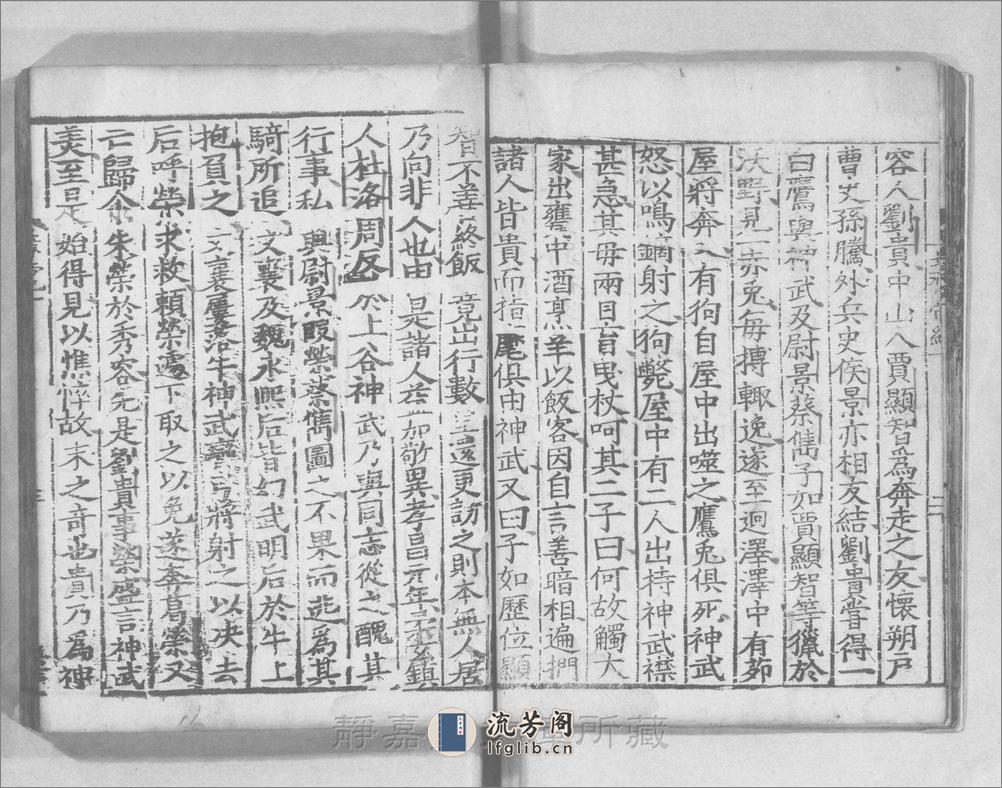 容人劉貴中山人賈顯智爲奔走之友懷朔戶
曹史孫騰外兵史侯景亦相友結劉貴嘗得一
白鷹與神武及尉景蔡儁子如賈顯智等獵於
沃野見一赤兔每搏輒逸遂至迥澤澤中有茆
屋將奔入有狗自屋中出噬之鷹兔俱死神武
怒以鳴鏑射之狗斃屋中有二人出持神武襟
甚急其母兩目盲曳杖呵其二子曰何故觸大
家出甕中酒烹羊以飯客因自言善暗相遍捫
諸人皆貴而指麾俱由神武又曰子如歷位顯
智不善終飯竟出行數里還更訪之則本無人居
乃向非人也由是諸人益加敬異孝昌元年柔玄鎮
人杜洛周反於上谷神武乃與同志從之醜其
行事私與尉景段榮蔡儁圖之不果而逃爲其
騎所追文襄及魏永熙后皆幼武明后於牛上
抱負之文襄屢落牛神武彎弓將射之以决去
后呼榮求救賴榮遽下取之以免遂奔葛榮又
亡歸尒朱榮於秀容先是劉貴事榮盛言神武
美至是始得見以憔悴故未之奇也貴乃爲神
靜嘉
所藏
流芳阁
lfglib.cn